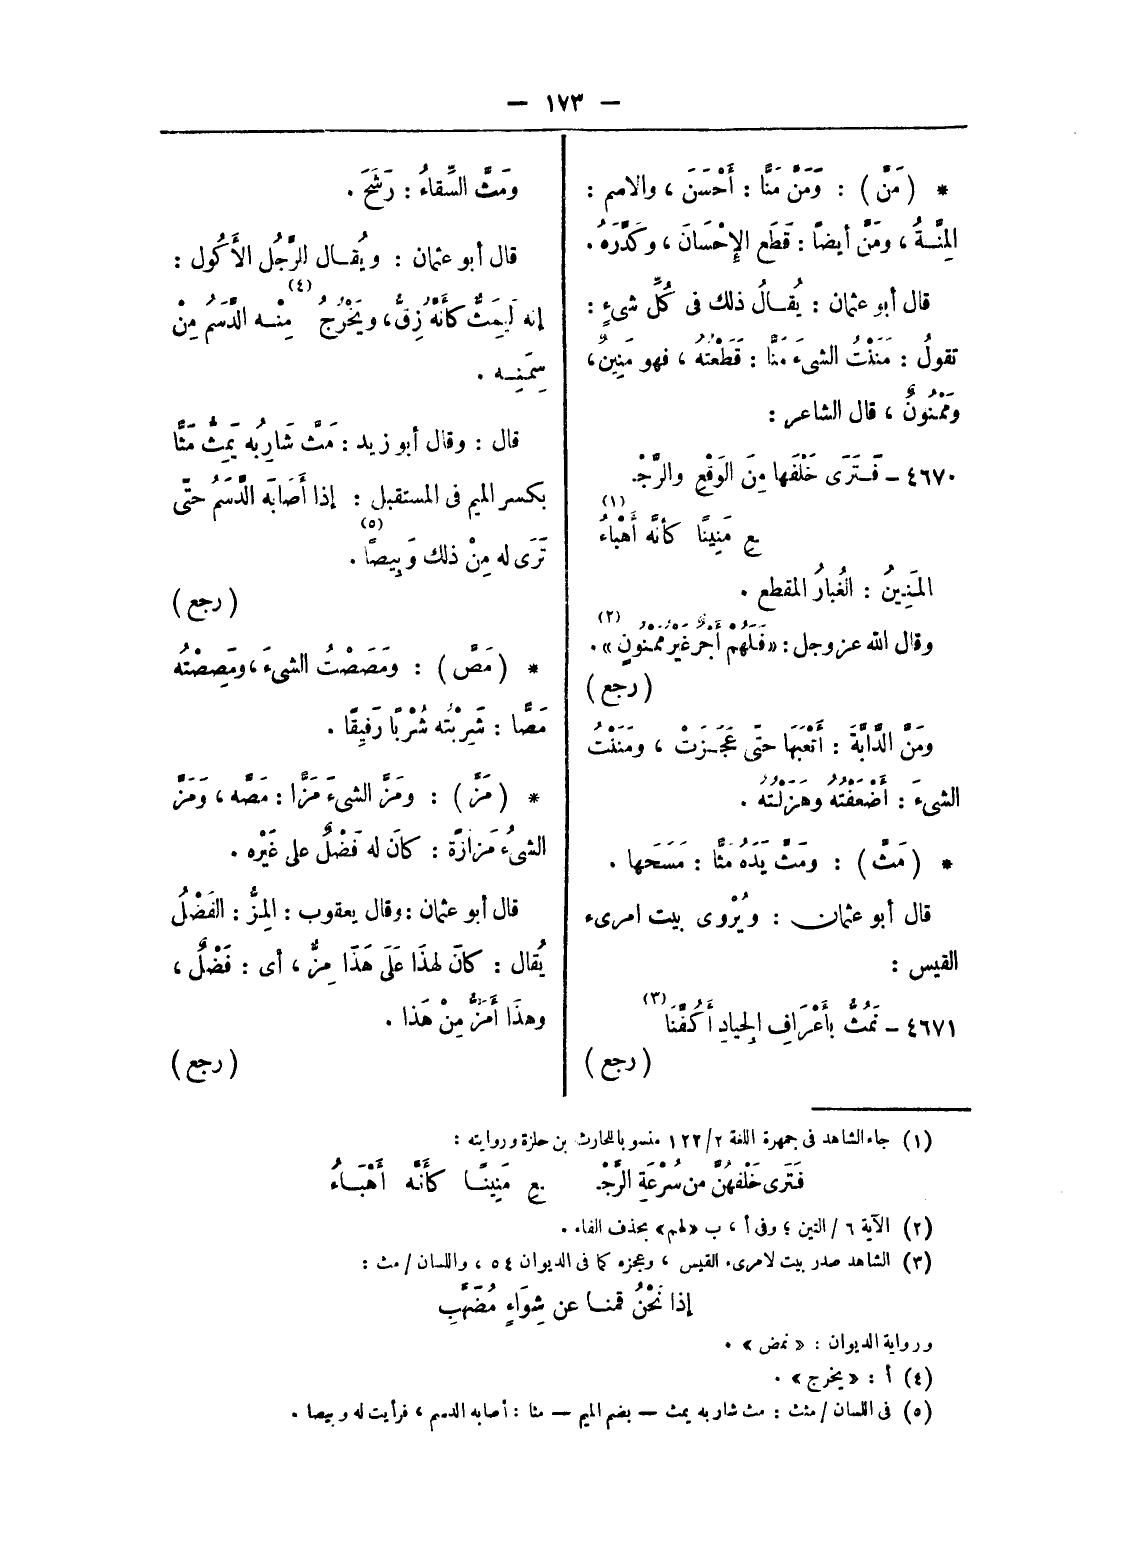 — ١٧٣ —
* (مَنَّ) : وَمَنَّ مَنًّا : أَحْسَنَ ، والاسم :
المِنَّةُ ، ومَنَّ أيضًا : قَطَع الإِحْسَانَ ، وكَدَّرَهُ .
قال أبو عثمان : يُقالُ ذلك فى كُلِّ شىءٍ :
تقولُ : مَنَنْتُ الشىءَ مَنًّا : قَطَعْتُهُ ، فهو مَنِينٌ ،
وَمَمْنُونٌ ، قال الشاعر :
٤٦٧٠ – فَتَرَى خَلْفَها مِنَ الوَقْعِ والرَّجْـ
ـعِ مَنِينًا كأنَّه أَهْبَاءُ (١)
المَنِينُ : الغُبارُ المقطع .
وقال الله عز وجل : «فَلَهُمْ أَجْرٌ غَيْرُ مَمْنُونٍ» (٢) .
(رجع)
ومَنَّ الدَّابَّةَ : أَتْعَبَهَا حتَّى عَجَزَتْ ، ومَنَنْتُ
الشىءَ : أَضْعَفْتُهُ وهَزَلْتُه .
* (مَثَّ) : ومَثَّ يَدَهُ مَثًّا : مَسَحَها .
قال أبو عثمان : ويُرْوى بيت امرىء
القيس :
٤٦٧١ – نَمُثُّ بأَعْرَافِ الجِيادِ أَكُفَّنَا (٣)
(رجع)
ومَثَّ السِّقاءُ : رَشَحَ .
قال أبو عثمان : ويُقال الرَّجُل الأَكُول :
إنه لَيَمِثُّ كأَنَّهُ زِقٌّ ، ويَخْرُجُ (٤) مِنْه الدَّسَم مِنْ
سِمَنِه .
قال : وقال أبو زيد : مَثَّ شَارِبُه يَمِثُّ مَثًّا
بكسر الميم فى المستقبل : إذا أَصَابَه الدَّسَمُ حتَّى
تَرَى له مِنْ ذلك وَبِيصًا (٥) .
(رجع)
* (مَصَّ) : ومَصَصْتُ الشىءَ ، ومَصِصْتُه
مَصًّا : شَرِبْتُه شُرْبًا رَفِيقًا .
* (مَزَّ) : ومَزَّ الشىءَ مَزًّا : مَصَّه ، وَمَزَّ
الشىءُ مَزازَةً : كانَ له فَضْلٌ على غَيْرِه .
قال أبو عثمان : وقال يعقوب : المِزُّ : الفَضْلُ
يُقال : كانَ لهذَا عَلَى هَذَا مِزٌّ ، أى : فَضْلٌ ،
وهذَا أَمَزُّ مِنْ هَذا .
(رجع)
(١) جاء الشاهد فى جمهرة اللغة ٢/ ١٢٢ منسوبا للحارث بن حلزة وروايته :
فَتَرى خَلْفهُنَّ من سُرْعَةِ الرَّجْـ ـعِ مَنِينًا كأنَّه أَهْبَاءُ
(٢) الآية ٦ / التين ؛ وفى أ ، ب «لهم» بحذف الفاء .
(٣) الشاهد صدر بيت لامرىء القيس ، وعجزه كما فى الديوان ٥٤ ، واللسان / مث :
إذا نَحْنُ قمنا عن شِوَاءٍ مُضَهَّبِ
ورواية الديوان : «نمض» .
(٤) أ : «يخرج» .
(٥) فى اللسان / مثث : مث شاربه يمث — بضم الميم — مثا : أصابه الدسم ، فرأيت له وبيصا .